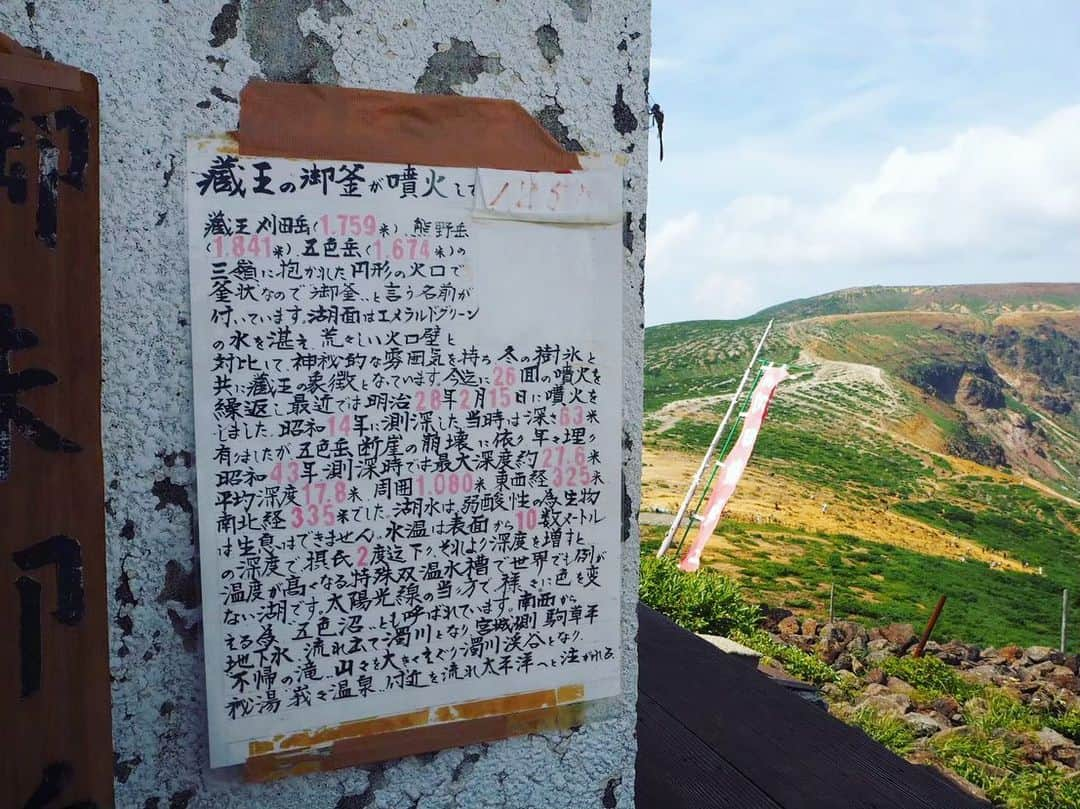 蔵王の御釜が噴火して
蔵王 刈田岳(1.759米). 熊野岳
(1.841米). 五色岳(1.674米)の
三嶺に抱かれした円形の火口で
釜状なので御釜..と言う名前が
付いています.湖面はエメラルドグリーン
の水を湛え.荒々しい火口壁と
対比して.神秘的な雰囲気を持ち冬の樹氷と
共に蔵王の象徴となっています.今迄に26回の噴火を
繰返し最近では明治28年2月15日に噴火を
しました.昭和14年に測深した当時は深さ63米
有りましたが五色岳断崖の崩壊に依り年々埋り
昭和43年測深時では最大深度約27.6米
平均深度17.8米.周囲1.080米東西経325米
南北経335米でした.湖水は弱酸性の為生物
は生息はできません.水温は表面から10数メートル
の深度で.摂氏2度迄下り.それより深度を増すと
温度が高くなる特殊双温水槽で世界でも例が
ない湖です.太陽光線の当り方で様々に色を変
える為.五色沼..とも呼ばれています.南西から
地下水流れ出て濁川となり宮城側駒草平
不帰の滝..山々を大きくえぐり濁川渓谷となり.
秘湯峩々温泉..付近を流れ太平洋へと注がれる